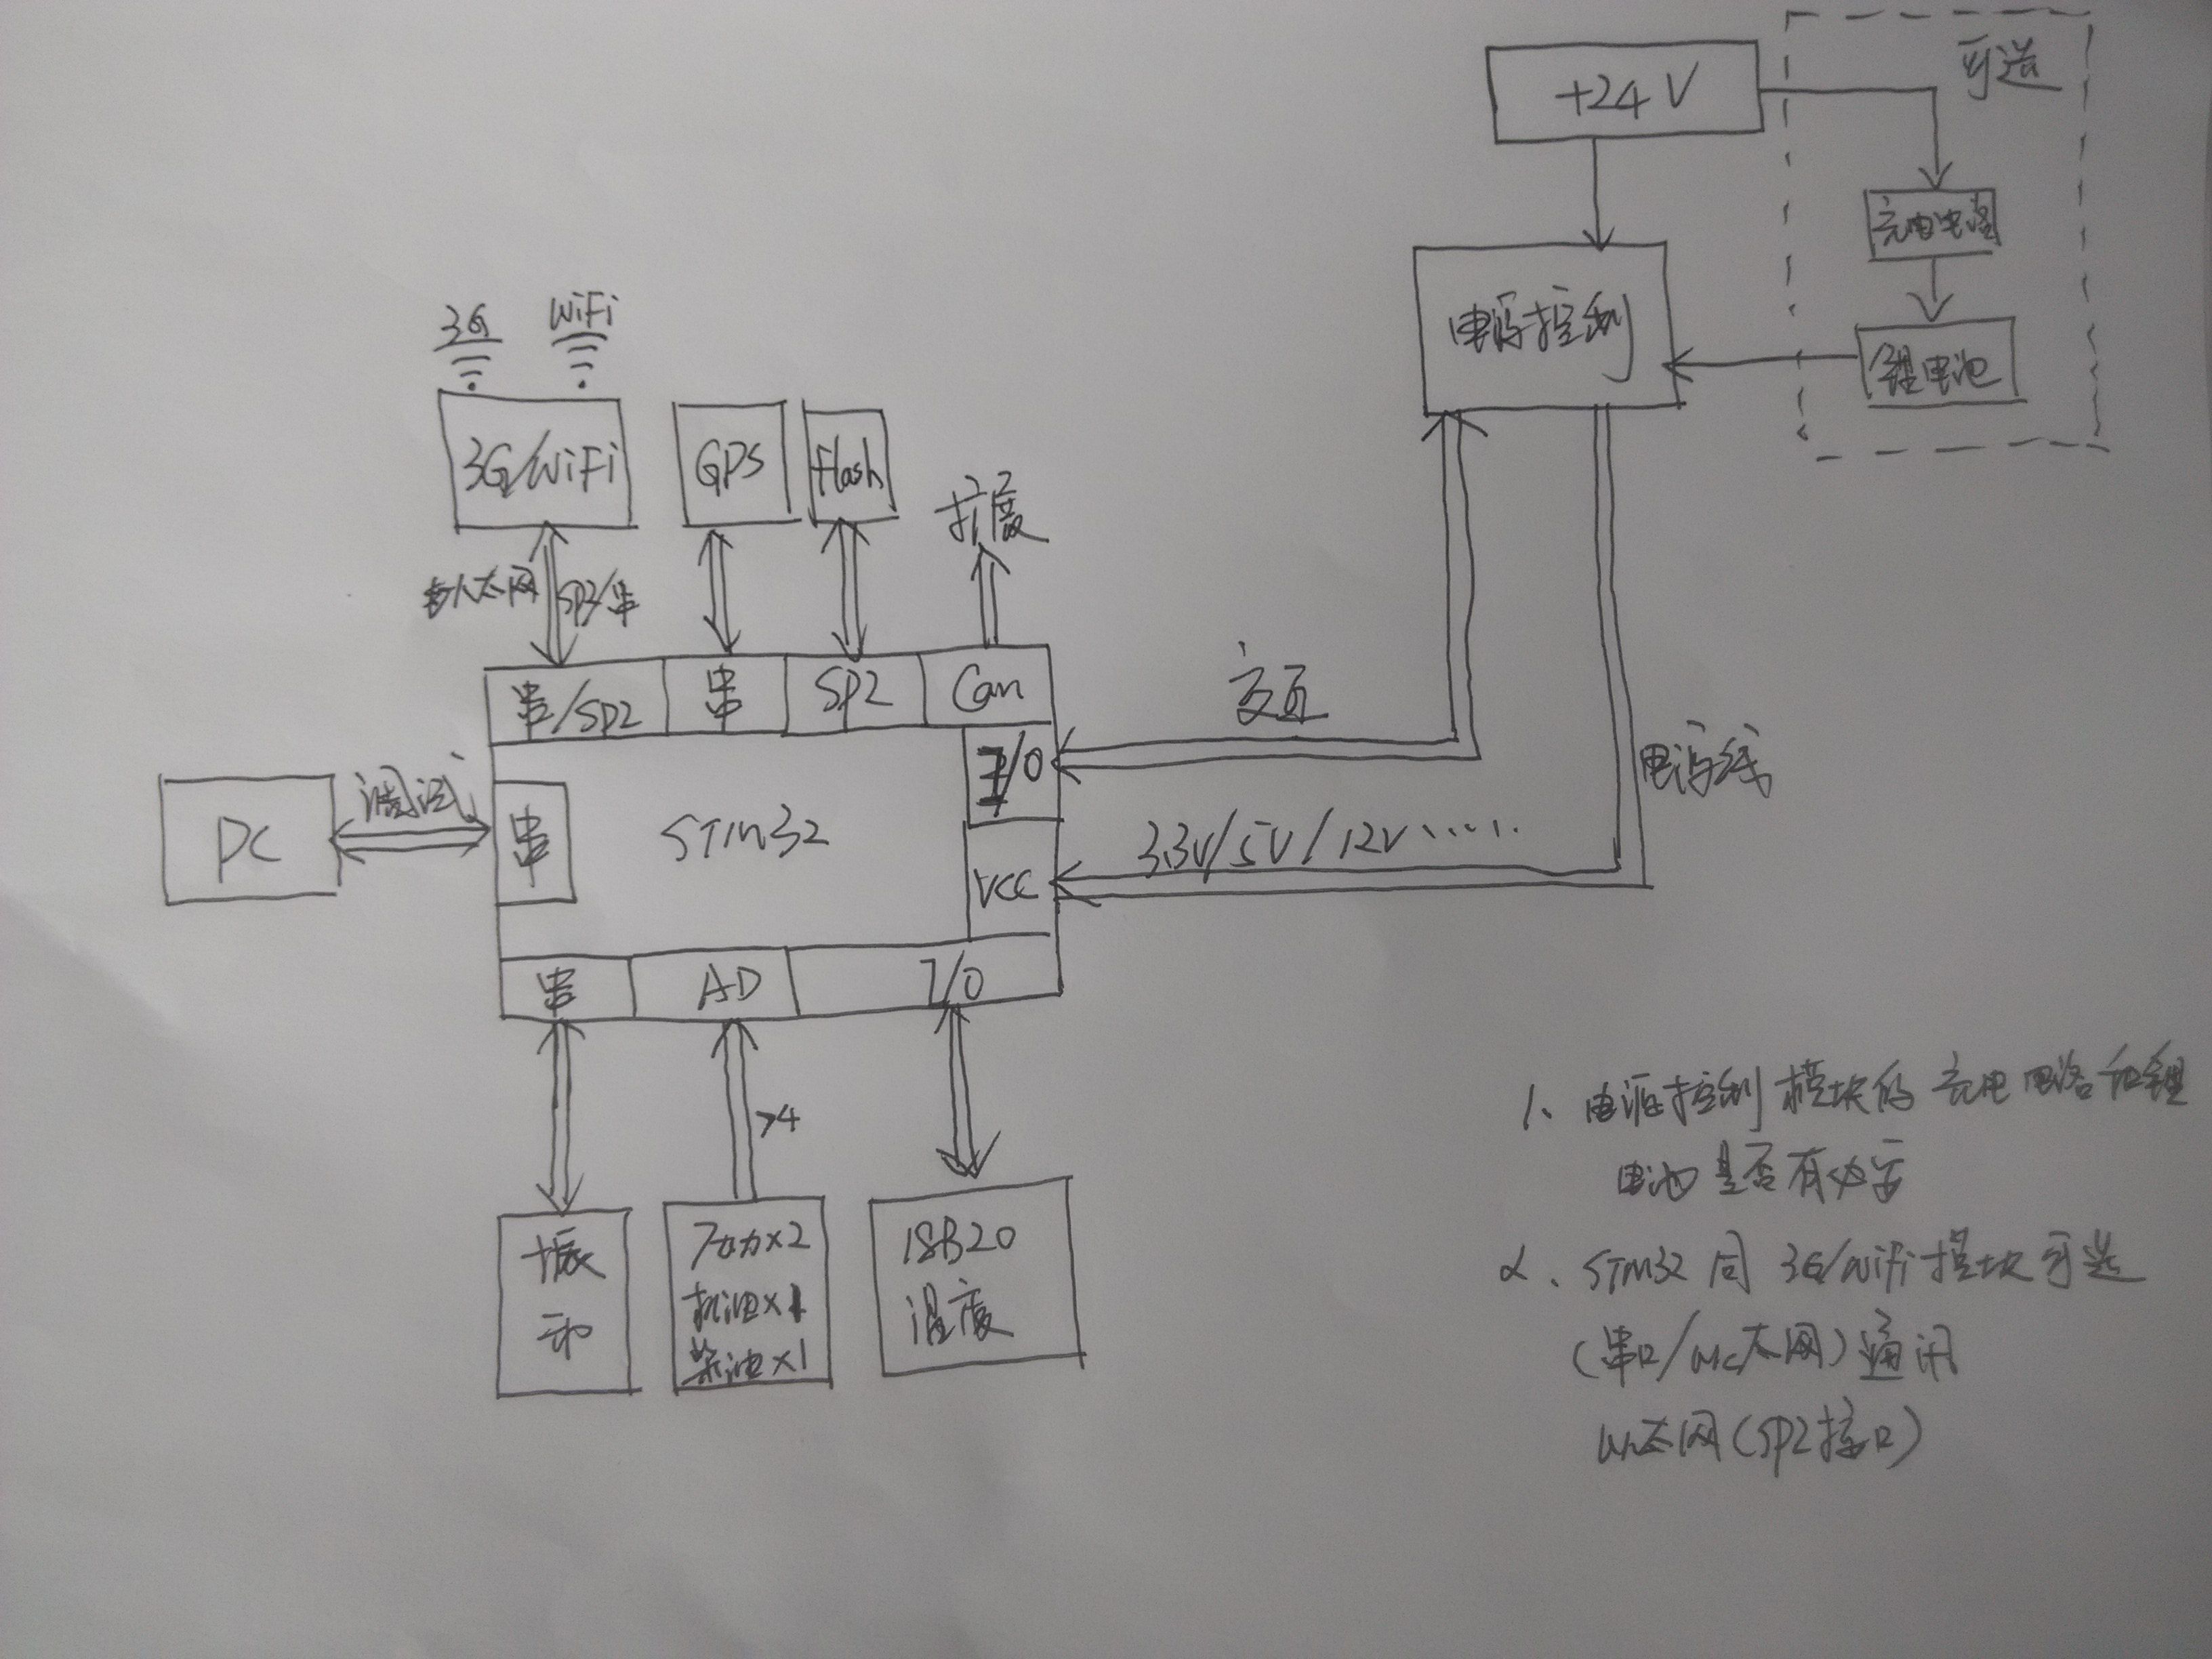 +24V
可选
充电电路
电源控制
锂电池
3G
WiFi
3G/WiFi
GPS
Flash
扩展
以太网
SPI/串
串/SPI
串
SPI
Can
交互
I/O
电源线
PC
调试
串
STM32
3.3V/5V/12V......
VCC
串
AD
I/O
>4
振
动
压力×2
机油×1
柴油×1
18B20
温度
1、电源控制模块的充电电路和锂
电池是否有必要
2、STM32同3G/WiFi模块可选
(串口/以太网)通讯
以太网(SPI接口)